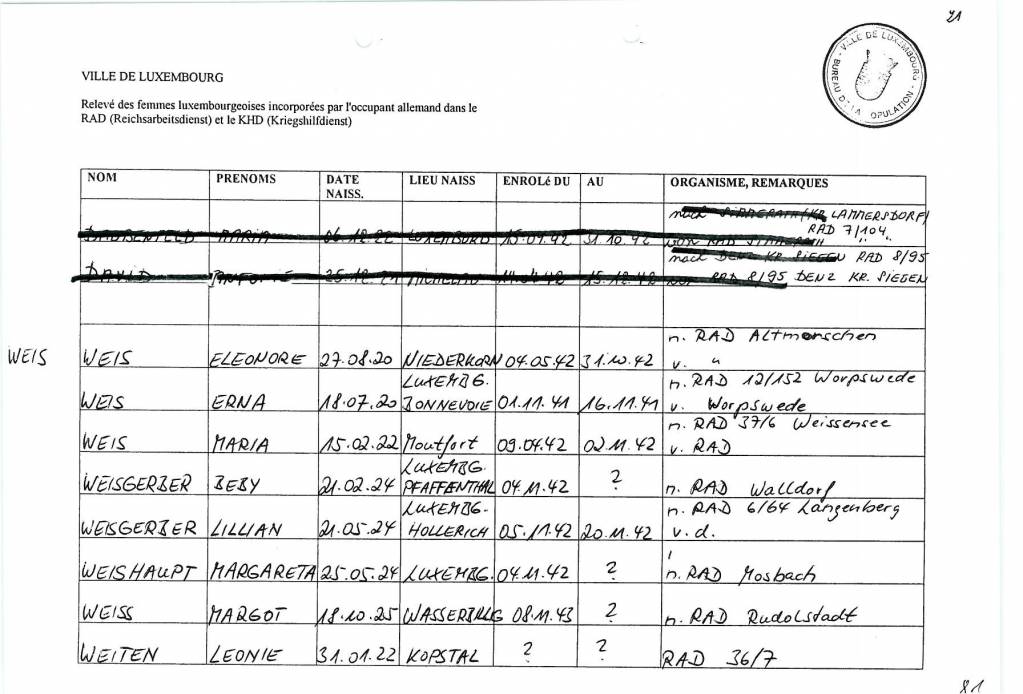 21
VILLE DE LUXEMBOURG
BUREAU DE LA POPULATION
VILLE DE LUXEMBOURG
Relevé des femmes luxembourgeoises incorporées par l'occupant allemand dans le
RAD (Reichsarbeitsdienst) et le KHD (Kriegshilfdienst)
NOM PRENOMS DATE NAISS. LIEU NAISS ENROLé DU AU ORGANISME, REMARQUES
nach LAMMERSDORF/
RAD 7/104
MARIA 06.12.22 LUXEMBURG 15.04.42 31.10.42 " "
nach DENZ KR. SIEGEN RAD 8/95
DAVID 15.12.42 RAD 8/95 DENZ KR. SIEGEN
n. RAD Altmorschen
WEIS WEIS ELEONORE 27.08.20 NIEDERKORN 04.05.42 31.10.42 v. "
LUXEMBG. n. RAD 12/152 Worpswede
WEIS ERNA 18.07.20 BONNEVOIE 01.11.41 16.11.41 v. Worpswede
n. RAD 37/6 Weissensee
WEIS MARIA 15.02.22 Moutfort 09.04.42 02.11.42 v. RAD
LUXEMBG.
WEISGERBER BEBY 21.02.24 PFAFFENTHAL 04.11.42 ? n. RAD Walldorf
LUXEMBG- n. RAD 6/64 Langenberg
WEISGERBER LILLIAN 21.05.24 HOLLERICH 05.11.42 20.11.42 v. d.
WEISHAUPT MARGARETA 25.05.24 LUXEMBG. 04.11.42 ? n. RAD Mosbach
WEISS MARGOT 18.10.25 WASSERBILLIG 08.11.43 ? n. RAD Rudolstadt
WEITEN LEONIE 31.01.22 KOPSTAL ? ? RAD 36/7
81